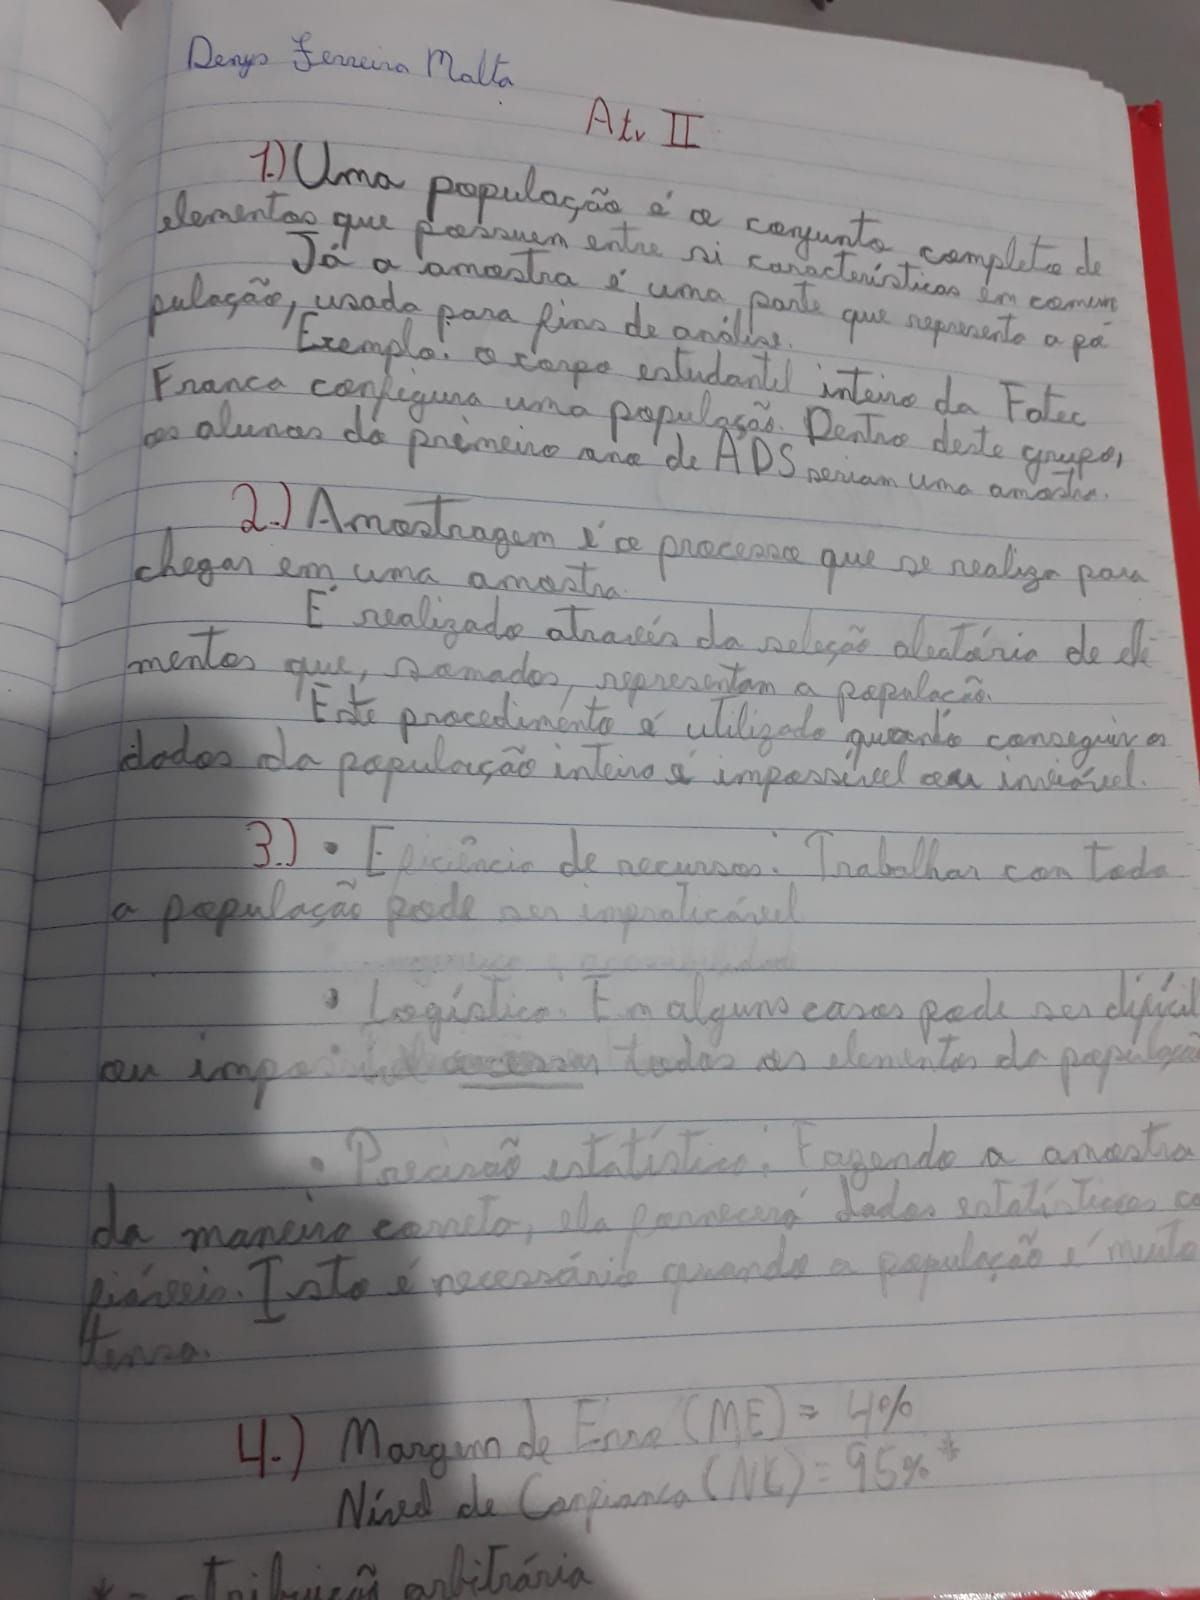 Denys Ferreira Malta
Atv II
1.) Uma população é o conjunto completo de
elementos que possuem entre si características em comum
Já a amostra é uma parte que representa a po
pulação, usada para fins de análise.
Exemplo: o corpo estudantil inteiro da Fatec
Franca configura uma população. Dentro deste grupo,
os alunos do primeiro ano de ADS seriam uma amostra.
2.) Amostragem é o processo que se realiza para
chegar em uma amostra.
É realizado através da seleção aleatória de ele
mentos que, somados, representam a população.
Este procedimento é utilizado quando conseguir os
dados da população inteira é impossível ou inviável.
3.) • Eficiência de recursos: Trabalhar com toda
a população pode ser impraticável
• Logística: Em alguns casos pode ser difícil
ou impossível acessar todos os elementos da população
• Precisão estatística: Fazendo a amostra
da maneira correta, ela fornecerá dados estatísticos co
fiáveis. Isto é necessário quando a população é muito
tensa.
4.) Margem de Erro (ME) = 4%
Nível de Confiança (NC) = 95% *
* = atribuição arbitrária